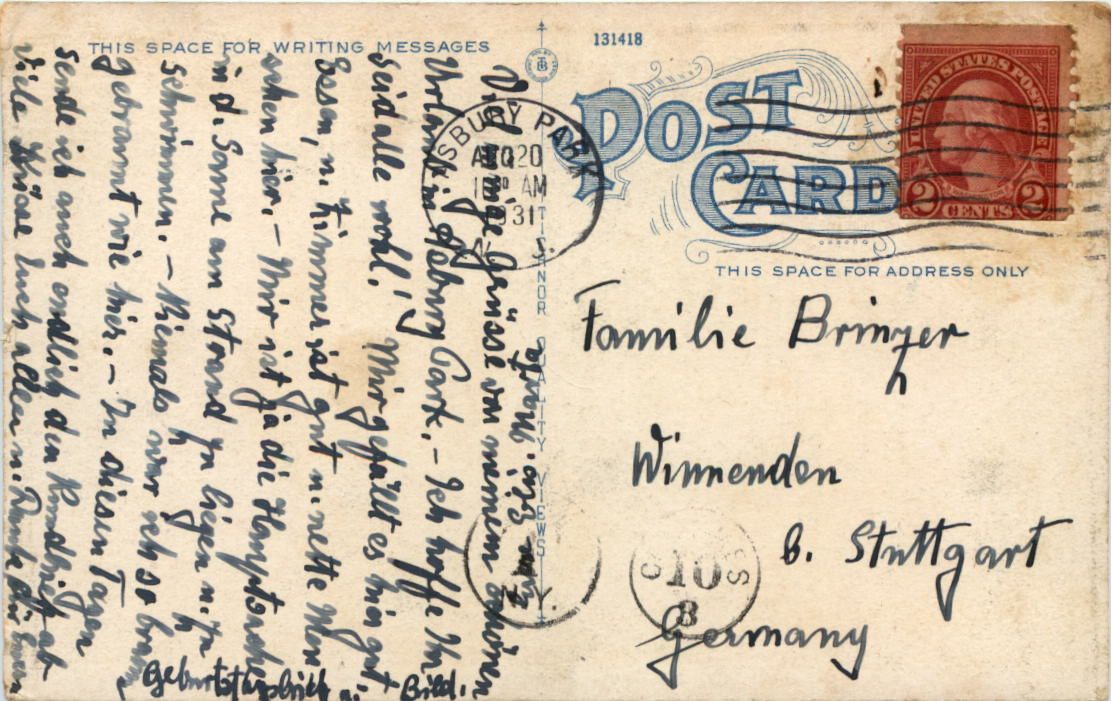 THIS SPACE FOR WRITING MESSAGES
131418
POST
CARD
THIS SPACE FOR ADDRESS ONLY
UNITED STATES POSTAGE
2 CENTS 2
ASBURY PARK
AUG 20
10 AM
1931
N. J.
QUALITY VIEWS
Familie Bringer
Winnenden
b. Stuttgart
Germany
10
Viele Grüsse von meinem schönen
Urlaub in Asbury Park. – Ich hoffe Ihr
seid alle wohl! Mir gefällt es hier gut,
Essen, u. Zimmer ist gut u. nette Men
schen hier. – Mir ist ja die Hauptsache
in d. Sonne am Strand zu liegen u. zu
schwimmen. – Niemals war ich so braun
gebrannt wie hier. – In diesen Tagen
sende ich auch endlich den Rundbrief ab
Viele Grüsse Euch allen u. Dank für
Geburtstagsbrief u. Bild.